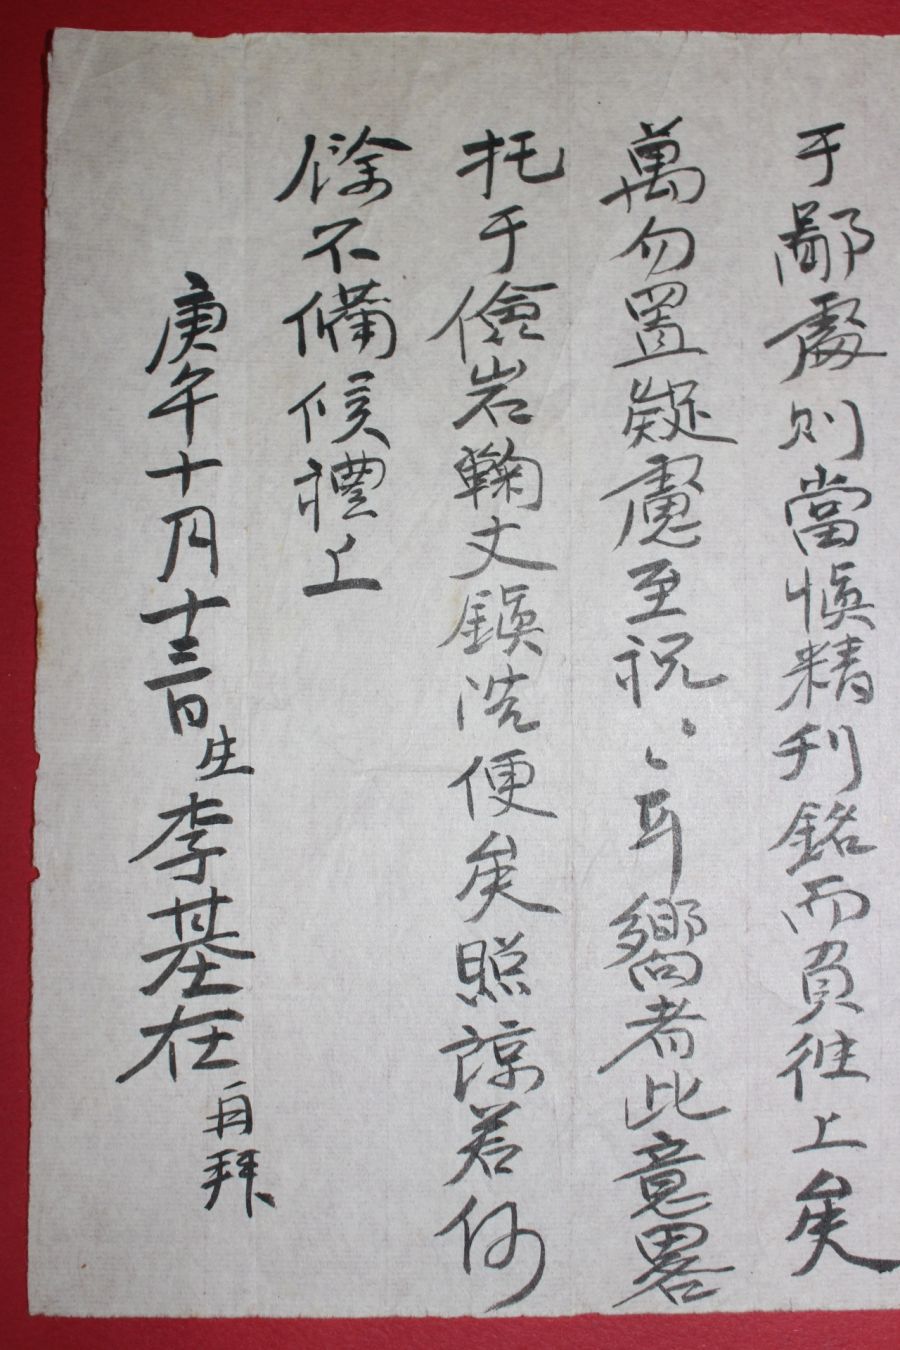 于鄙處則當愼精刊銘而負徃上矣
萬勿置疑慮至祝〻〻耳嚮者此意畧
托于儉岩鞠丈鎭浩便矣照諒若何
餘不備候禮上
庚午十月十三日生李基在再拜